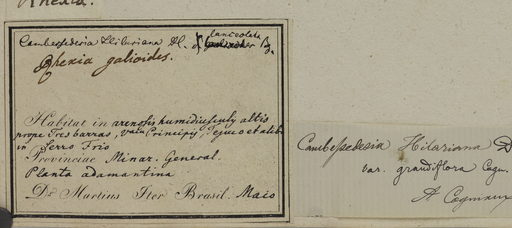 Rhexia.
Cambessedesia Hilariana DC. lanceolata
Rhexia galioides.
Habitat in arenosis humidiusculis altis
prope Tresbarras, Principis, ejus et alibi
in Serro Frio
Provinciae Minar. General.
Planta adamantina
Dr Martius Iter Brasil. Maio
Cambessedesia Hilariana D
var. grandiflora Cogn.
A Cogniaux